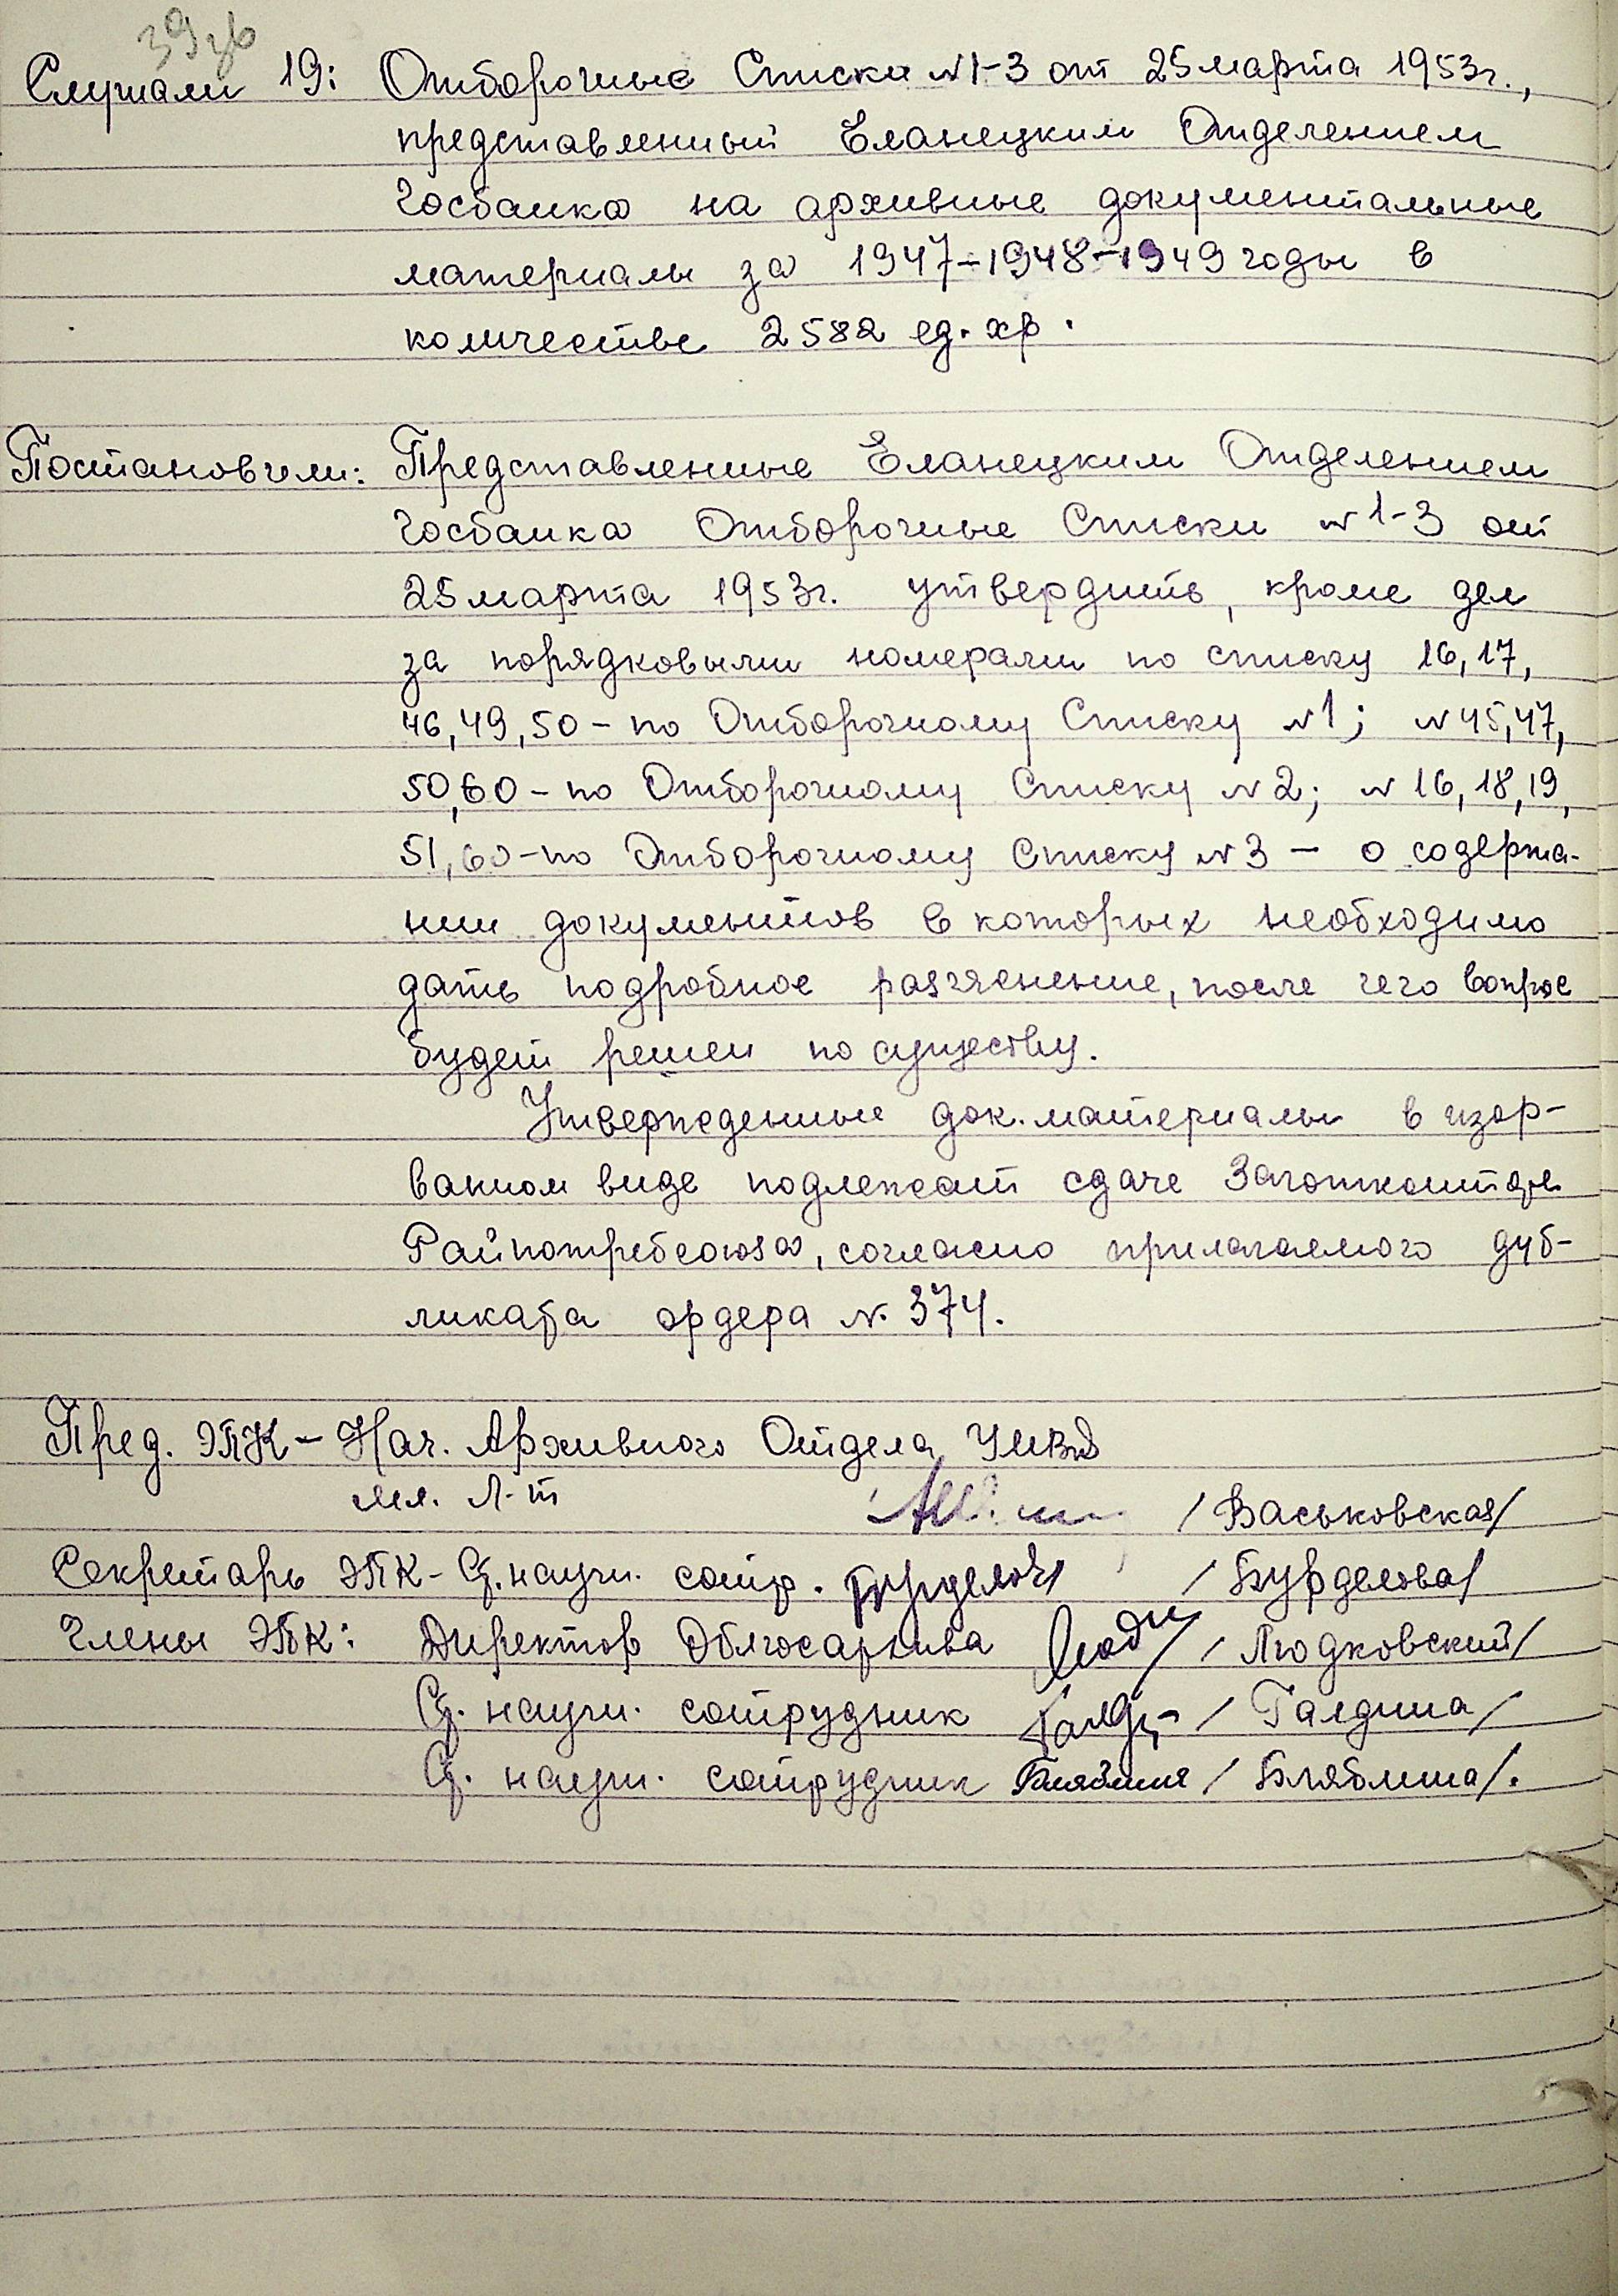 39зв
Слушали 19: Отборочные Списки №1-3 от 25 марта 1953г.,
представленный Еланецким Отделением
Госбанка на архивные документальные
материалы за 1947-1948-1949 годы в
количестве 2582 ед. хр.
Постановили: Представленные Еланецким Отделением
Госбанка Отборочные Списки №1-3 от
25 марта 1953г. утвердить, кроме дел
за порядковыми номерами по списку 16,17,
46,49,50 - по Отборочному Списку №1; №45,47,
50,60 - по Отборочному Списку №2; № 16,18,19,
51,60 - по Отборочному Списку №3 - о содержа-
нии документов в которых необходимо
дать подробное разъяснение, после чего вопрос
будет решен по существу.
Утвержденные док. материалы в изор-
ванном виде подлежат сдаче Заготконторе
Райпотребсоюза, согласно прилагаемого дуб-
ликата ордера №374.
Пред. ЭПК - Нач. Архивного Отдела УМВД
мл. л-т /Васьковская/
Секретарь ЭПК - Ст. научн. сотр. Бурделова /Бурделова/
Члены ЭПК: Директор Облгосархива /Людковский/
Ст. научн. сотрудник Галд /Галдина/
Ст. научн. сотрудник Бляблина /Бляблина/.